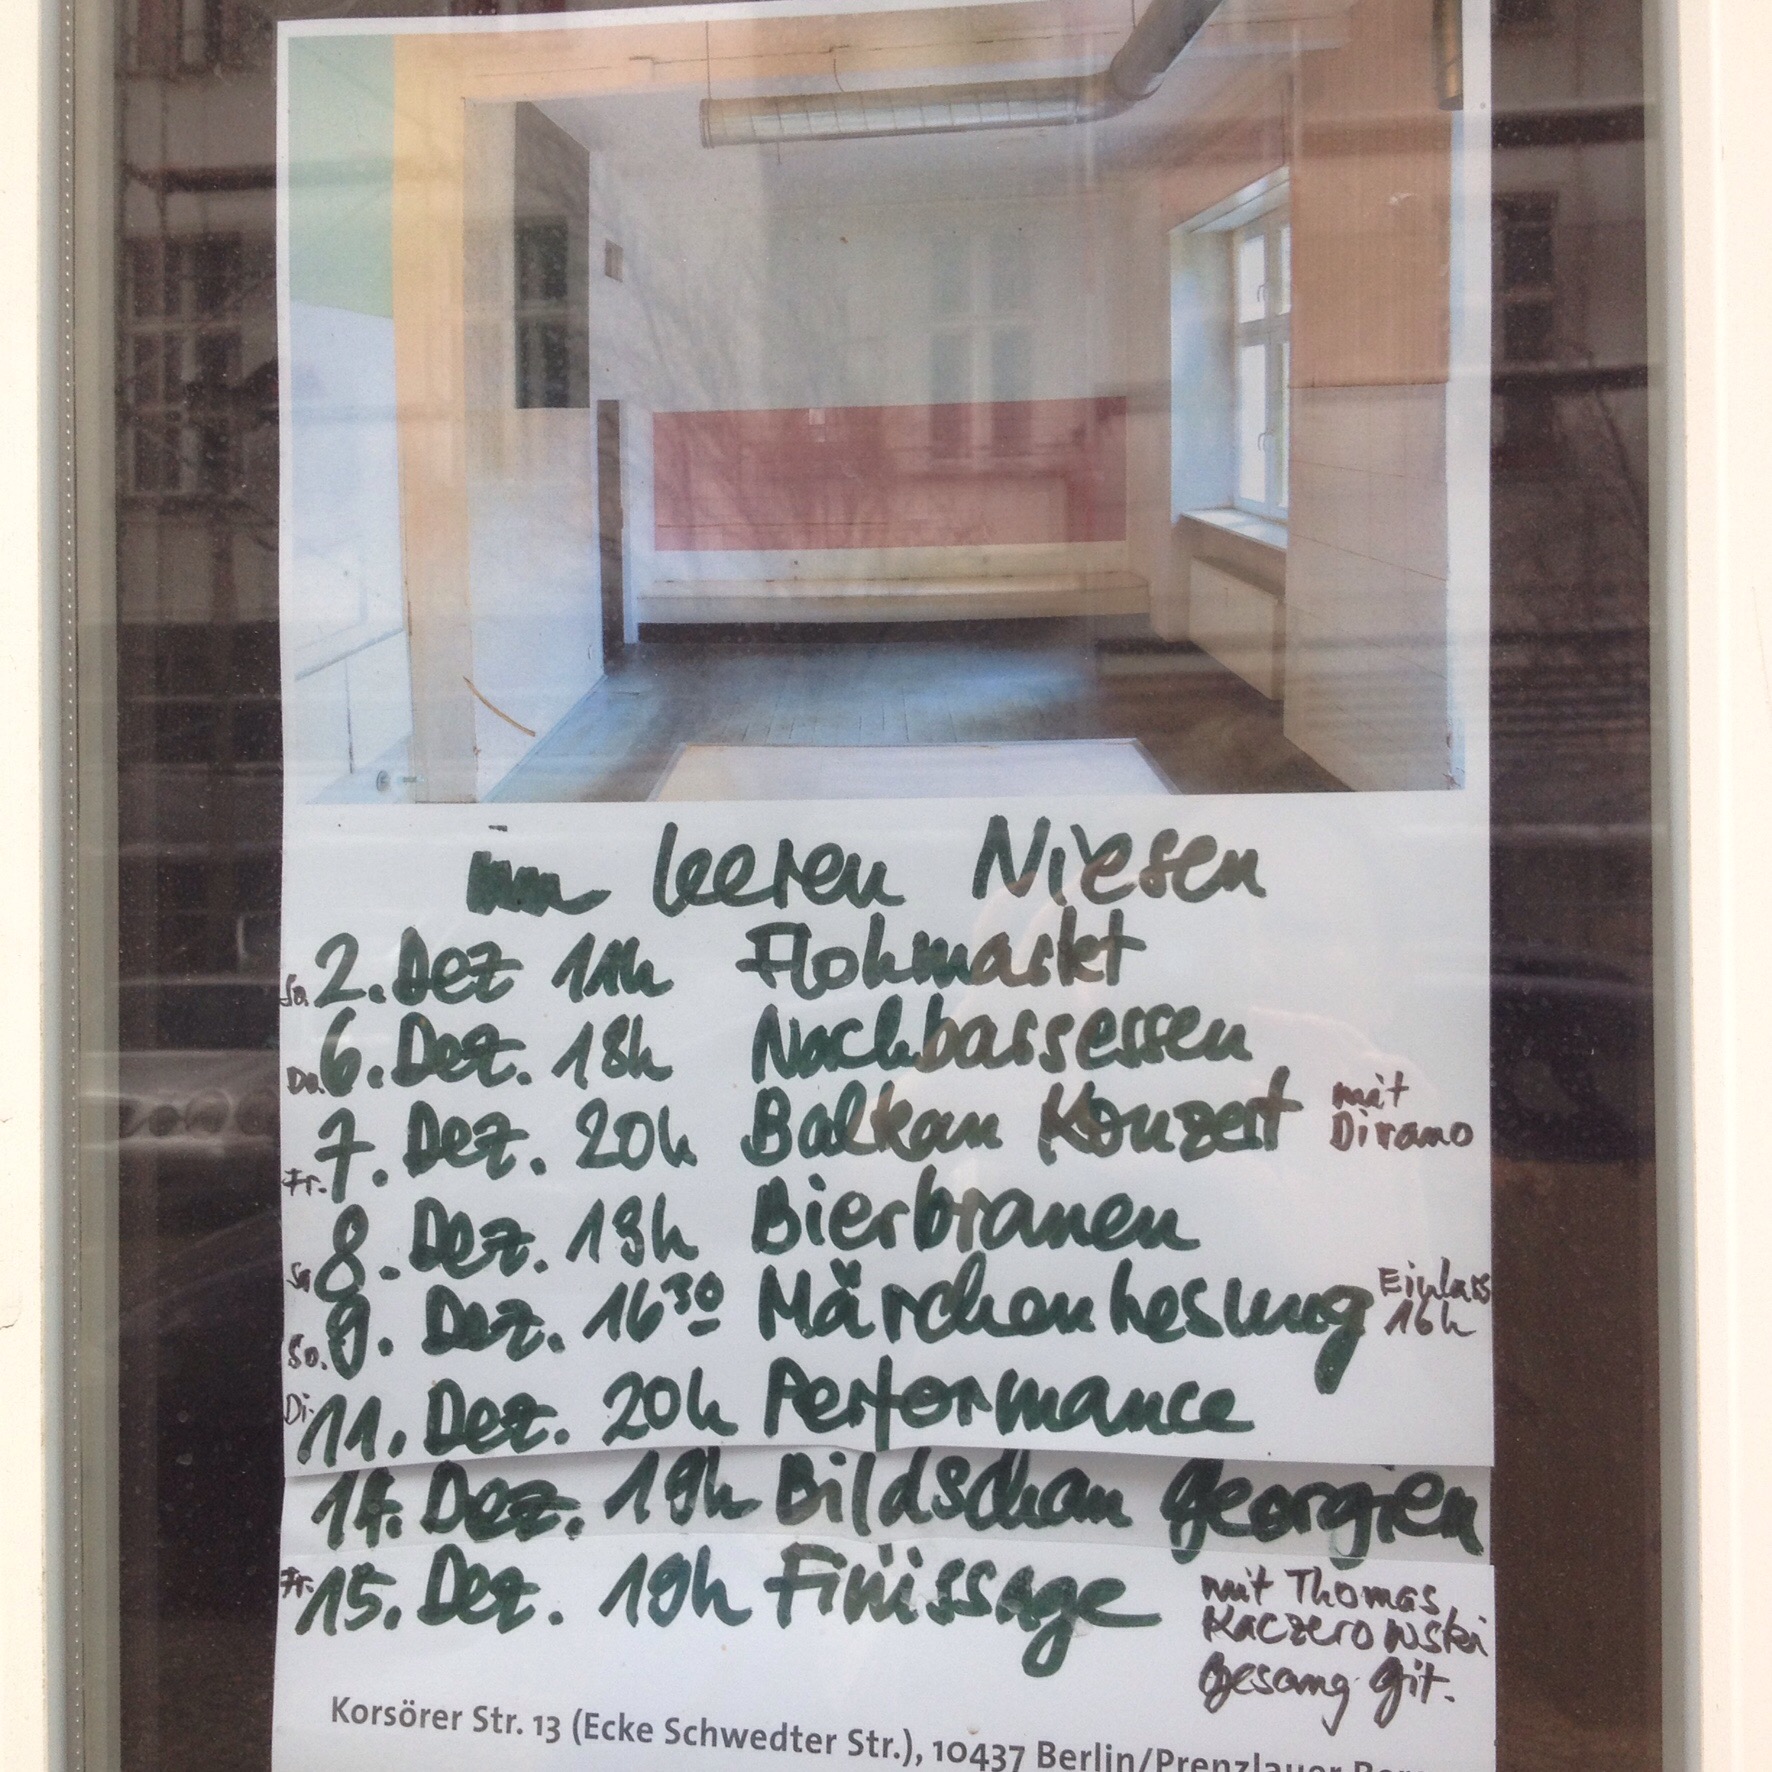 im leeren Niesen
So. 2. Dez 11h Flohmarkt
Do. 6. Dez. 18h Nachbarsessen
Fr. 7. Dez. 20h Balkan Konzert mit Diramo
Sa 8. Dez. 19h Bierbrauen
So. 9. Dez. 16 30 Märchenlesung Einlass 16h
Di. 11. Dez. 20h Performance
14. Dez. 19h Bildschau Georgien
Fr. 15. Dez. 19h Finissage mit Thomas Kaczerowski Gesang Git.
Korsörer Str. 13 (Ecke Schwedter Str.), 10437 Berlin/Prenzlauer